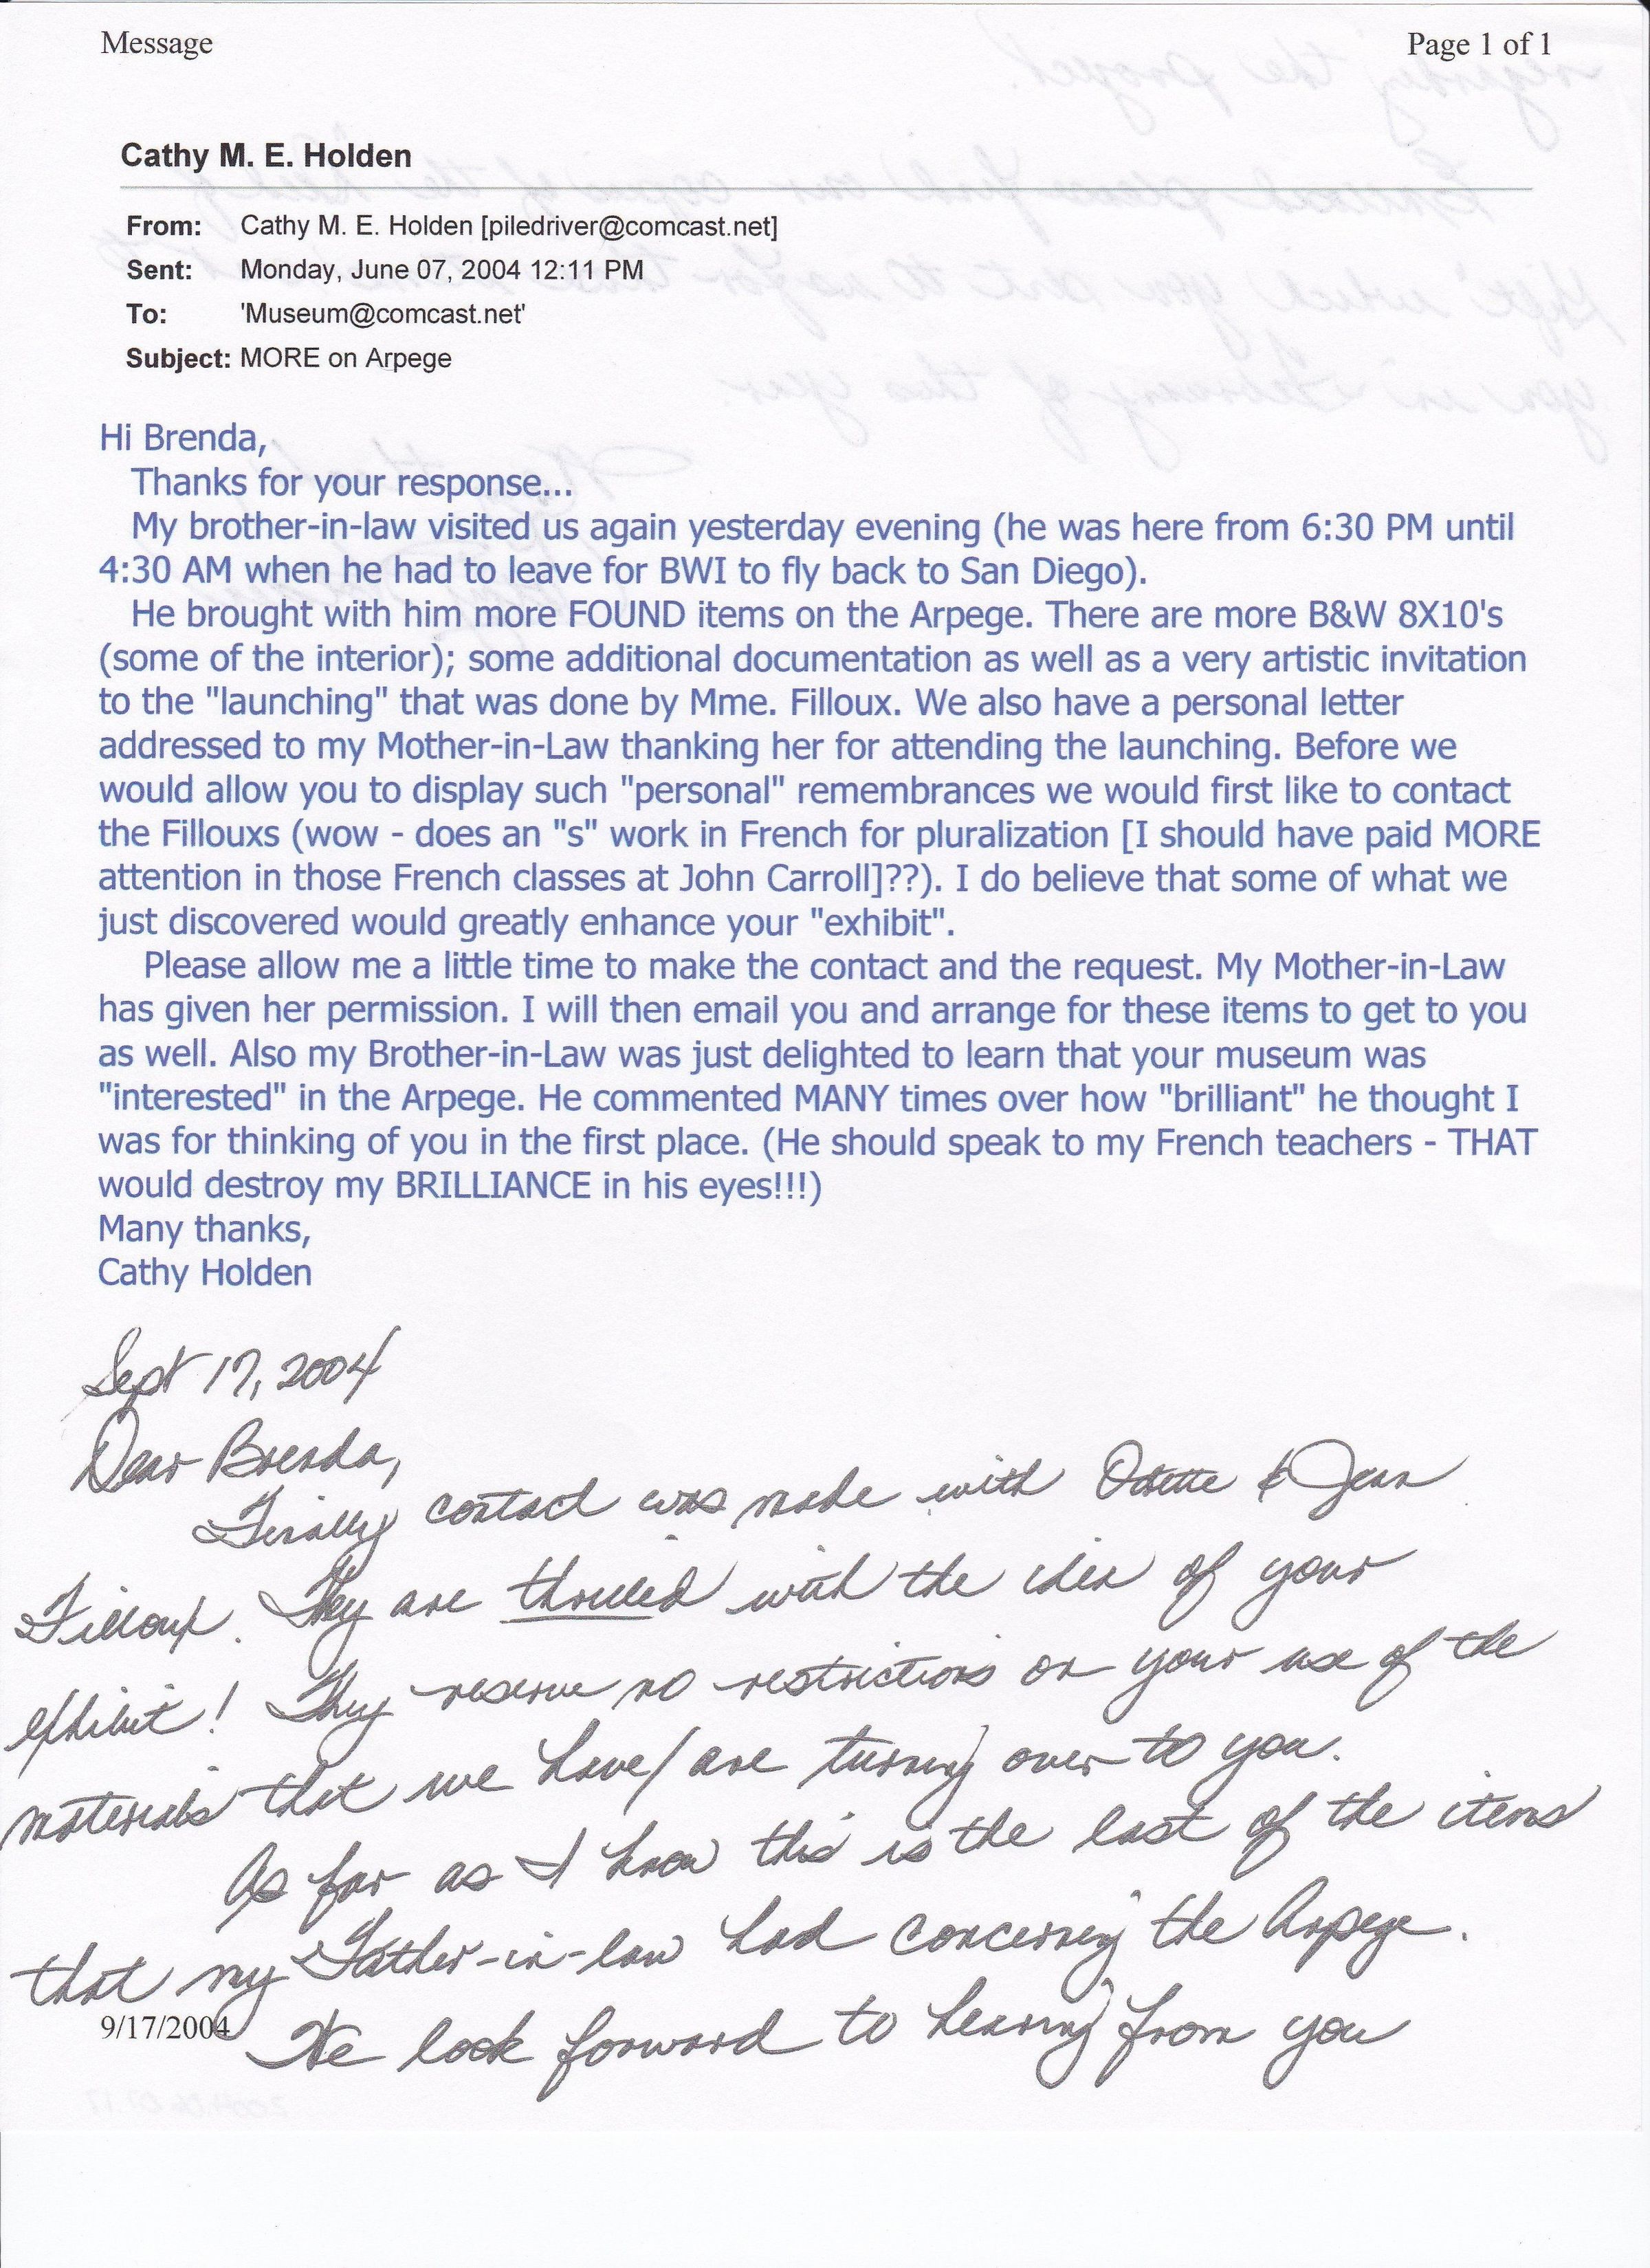 Message Page 1 of 1
Cathy M. E. Holden
From: Cathy M. E. Holden [piledriver@comcast.net]
Sent: Monday, June 07, 2004 12:11 PM
To: 'Museum@comcast.net'
Subject: MORE on Arpege
Hi Brenda,
Thanks for your response...
My brother-in-law visited us again yesterday evening (he was here from 6:30 PM until
4:30 AM when he had to leave for BWI to fly back to San Diego).
He brought with him more FOUND items on the Arpege. There are more B&W 8X10's
(some of the interior); some additional documentation as well as a very artistic invitation
to the "launching" that was done by Mme. Filloux. We also have a personal letter
addressed to my Mother-in-Law thanking her for attending the launching. Before we
would allow you to display such "personal" remembrances we would first like to contact
the Fillouxs (wow - does an "s" work in French for pluralization [I should have paid MORE
attention in those French classes at John Carroll]??). I do believe that some of what we
just discovered would greatly enhance your "exhibit".
Please allow me a little time to make the contact and the request. My Mother-in-Law
has given her permission. I will then email you and arrange for these items to get to you
as well. Also my Brother-in-Law was just delighted to learn that your museum was
"interested" in the Arpege. He commented MANY times over how "brilliant" he thought I
was for thinking of you in the first place. (He should speak to my French teachers - THAT
would destroy my BRILLIANCE in his eyes!!!)
Many thanks,
Cathy Holden
Sept 17, 2004
Dear Brenda,
Finally contact was made with Odette & Jean
Filloux. They are thrilled with the idea of your
exhibit! They reserve no restrictions on your use of the
materials that we have/are turning over to you.
As far as I know this is the last of the items
that my Father-in-law had concerning the Arpege.
9/17/2004 We look forward to hearing from you